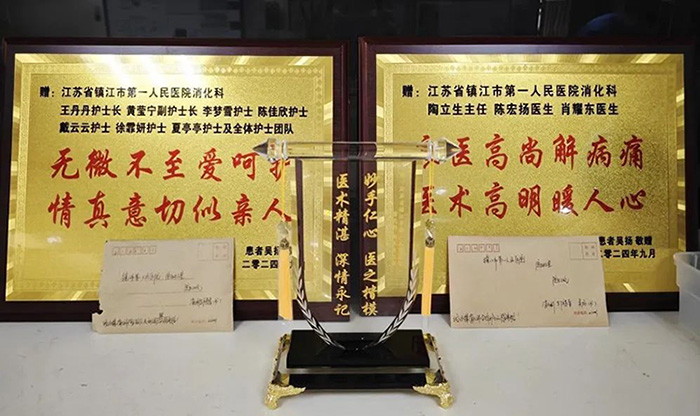 赠：江苏省镇江市第一人民医院消化科
王丹丹护士长 黄莹宁副护士长 李梦雪护士长 陈佳欣护士
戴云云护士 徐霏妍护士 夏亭亭护士及全体护士团队
无微不至爱呵护
情真意切似亲人
患者吴扬
二零二四年
妙手仁心 医之楷模
医术精湛 深情永记
赠：江苏省镇江市第一人民医院消化科
陶立生主任 陈宏扬医生 肖耀东医生
医高尚解病痛
医术高明暖人心
患者吴扬 敬赠
二零二四年九月